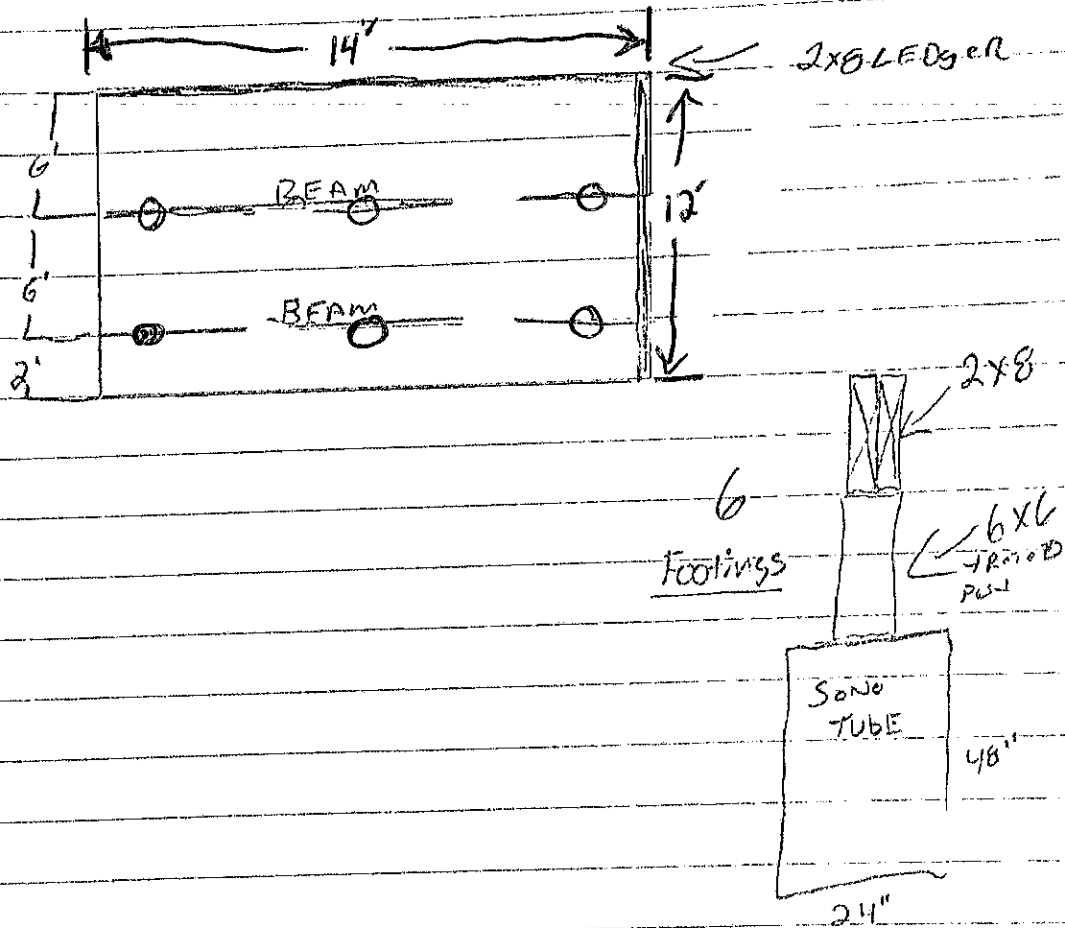 14'
2x8 LEDgeR
6'
BEAM
12'
6'
BEAM
2'
2x8
6
Footings
6x6
SONO
TUBE
48"
24"